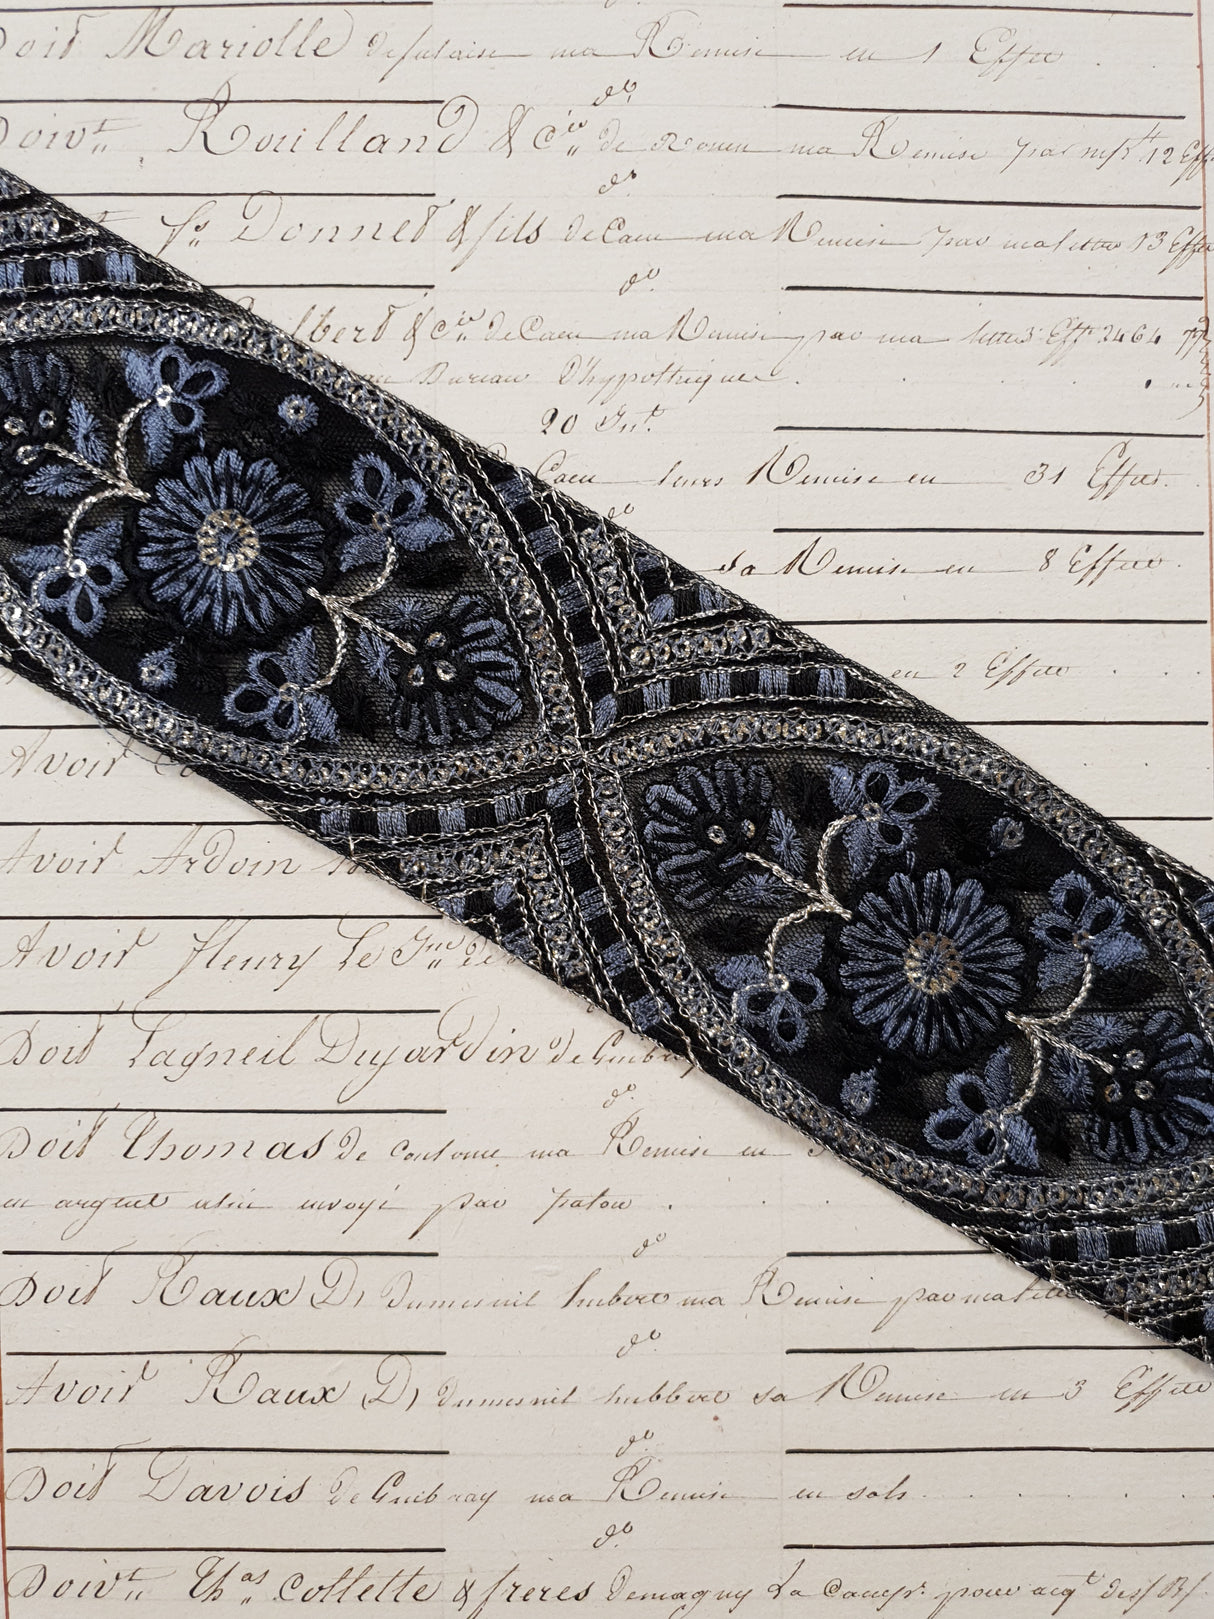 Doit Mariolle defalaise ma Remise en 1 Effet
do
Doivt Rouilland & Cie de Rouen ma Remise par 12 Eff
do
fs Donnet & fils de Caen ma Remise par malettre 13 Effe
do
lbert & Cie de Caen ma Remise par ma lettre 3 Effts 2464
Bureau D'hypothèques
20 Jnt.
Caen leurs Remise en 31 Effets
do
sa Remise en 8 Effets
en 2 Effets
Avoir
Avoir Ardoin
Avoir fleury Le Jne de
Doit Lagneil Dujardin de Guibr
do
Doit Thomas de ma Remise en
en argent envoyé par
do
Doit Raux D, dumesnil hubert ma Remise par ma lettre
do
Avoir Raux D, dumesnil hubbert sa Remise en 3 Effets
do
Doit Davois de Guibray ma Remise en sols
do
Doivt Thas Collette & frères demagny La